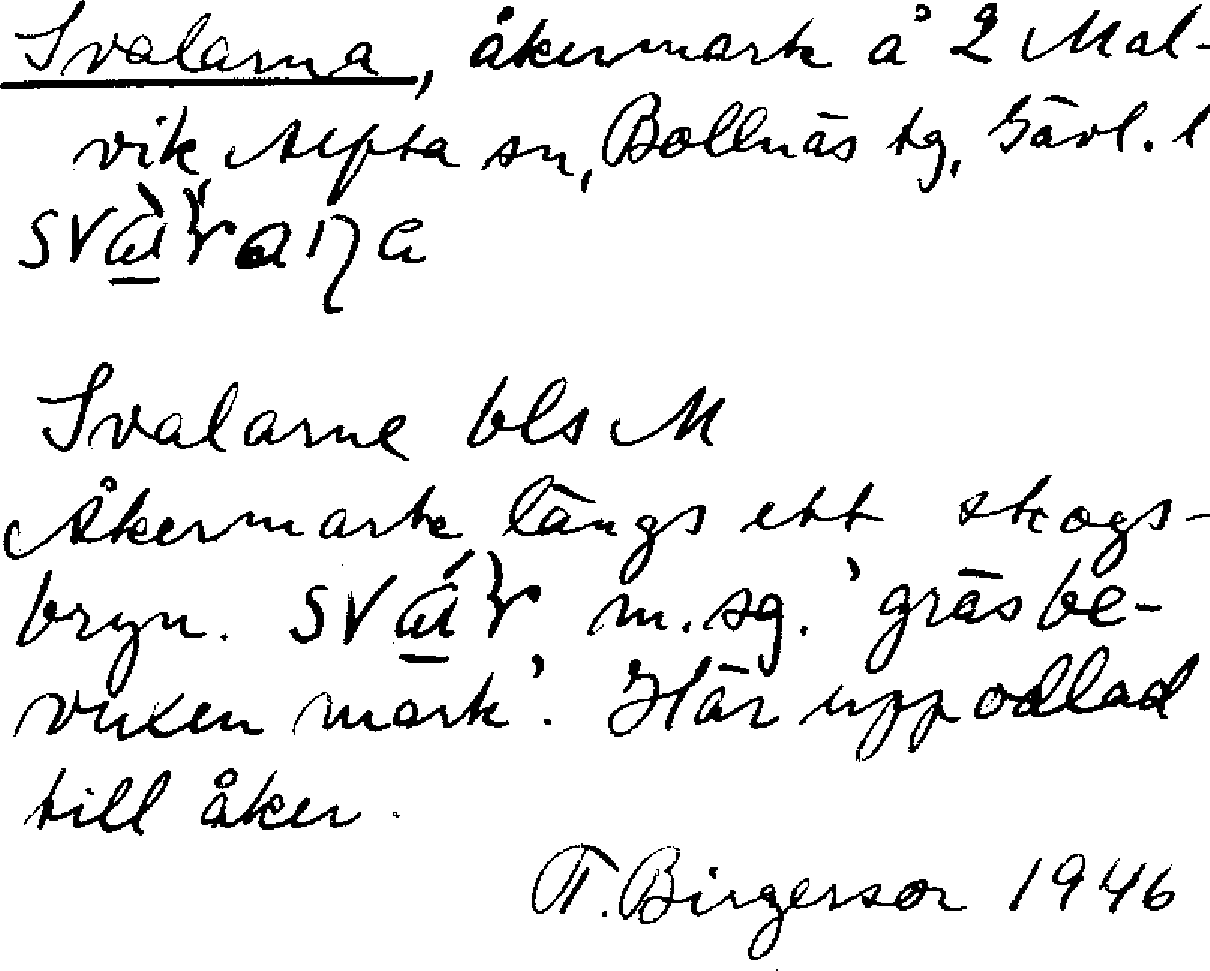 Svalarna, åkermark å 2 Mal-
vik, Alfta sn, Bollnäs tg, Gävl. l
Svalarne bls M
Åkermark längs ett skogs-
bryn. m.sg. 'gräsbe-
vuxen mark'. Här uppodlad
till åker.
T. Birgerson 1946